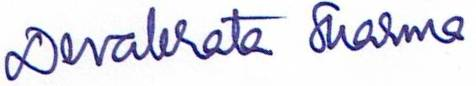 Devabrata Sharma